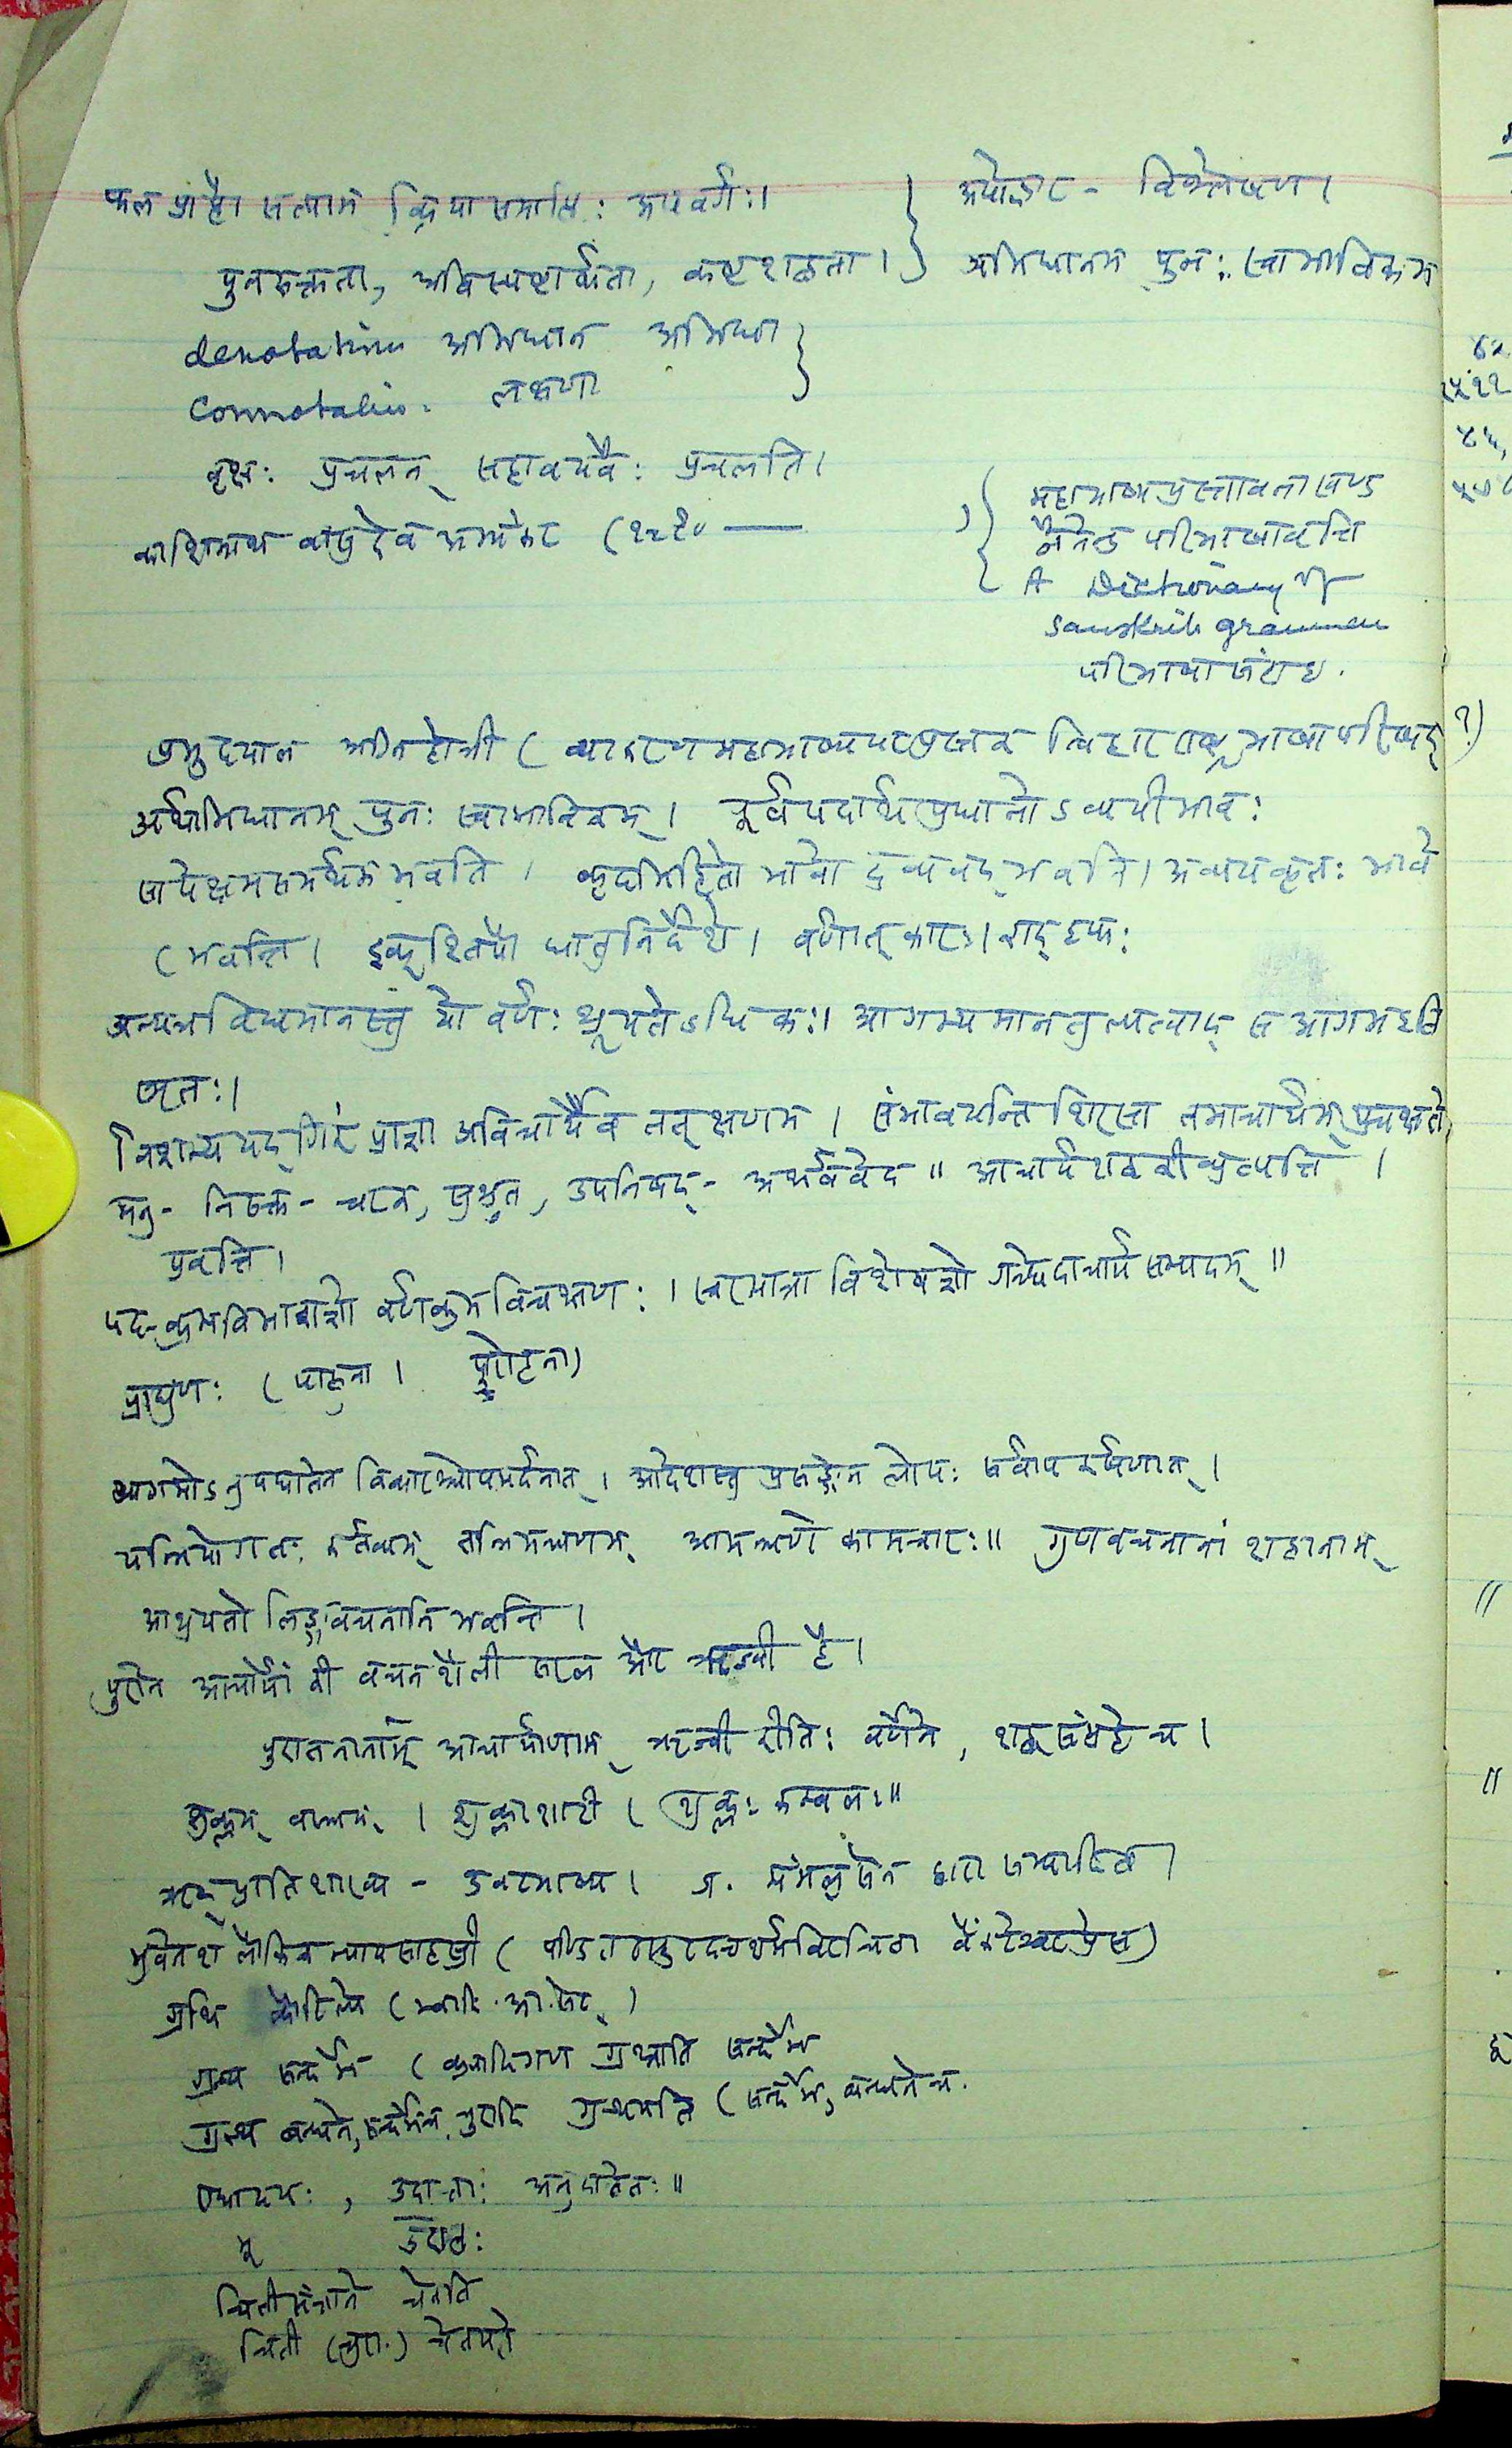 फल प्राप्तौ सत्याम् क्रिया समाप्तिः अपवर्गः।
पुनरुक्तता, अविस्पष्टार्थता, कष्टशब्दता।
denotation अभिधान अभिधा
connotation. लक्षणा
अपोद्धार - विश्लेषण।
अभिधानम् पुनः स्वाभाविकम्
वृक्षः प्रचलन् सहावयवैः प्रचलति।
काशिनाथ वासुदेव अभ्यंकर (१८९०
महाभाष्य प्रस्तावना खण्ड
जैनेन्द्र परिभाषावृत्ति
A Dictionary of
Sanskrit grammar
परिभाषा संग्रह.
प्रभुदयाल अग्निहोत्री ( व्याकरण महाभाष्य बिहार राष्ट्रभाषा परिषद् ?)
अर्थाभिधानम् पुनः स्वाभाविकम्। पूर्वपदार्थप्रधानोऽव्ययीभावः
सापेक्षमसमर्थम् भवति। कृदभिहितो भावो द्रव्यवद् भवति। अव्ययकृतः भावे
(भवन्ति। इक्श्तिपौ धातुनिर्देशे। वर्णात् कारः। रादिफः
अन्यत्र विद्यमानस्तु यो वर्णः श्रूयतेऽधिकः। आगम्यमानतुल्यत्वात् स आगम इति
स्मृतः।
निशम्य यद् गिरं प्राज्ञा अविचार्यैव तत्क्षणम्। संभावयन्ति शिरसा तमाचार्यम् प्रचक्षते।
मनु - निरुक्त - चरक, सुश्रुत, उपनिषद् - अथर्ववेद॥ आचार्य शब्द की व्युत्पत्ति।
प्रवृत्ति।
पद-क्रमविभागज्ञो वर्णक्रमविचक्षणः। स्वरमात्रा विशेषज्ञो गच्छेदाचार्य सम्पदम्॥
प्राघुणः ( पाहुना।
आगमोऽनुपघातेन विकारश्चोपमर्दनात्। आदेशस्तु प्रसङ्गेन लोपः सर्वापकर्षणात्।
यन्नियोगतः कर्तव्यम् तन्निमन्त्रणम्, आमन्त्रणे कामचारः॥ गुणवचनानां शब्दानाम्
आश्रयतो लिङ्गवचनानि भवन्ति।
पुराने आचार्यों की वचन शैली सरल और ऋज्वी है।
पुरातनानाम् आचार्याणाम् ऋज्वी रीतिः वर्णने, शब्दसंग्रहे च।
शुक्लम् वस्त्रम्। शुक्ला शाटी। शुक्लः कम्बलः॥
ऋक् प्रातिशाख्य - उवटभाष्य। द्वारा सम्पादित।
भुवनेश लौकिक न्यायसाहस्री ( विरचिता वैंकटेश्वर प्रेस)
ग्रथि कौटिल्ये (भ्वादि. आ. सेट्)
ग्रन्थ सन्दर्भे (क्र्यादिगण ग्रथ्नाति सन्दर्भ
ग्रन्थ बन्धने, सन्दर्भे च. चुरादि ग्रन्थयति (सन्दर्भे, बन्धने च.
उदात्ताः अनुदात्तेतः॥
भू उदात्तः
चिती संज्ञाने चेतति
चिती (चुरा.) चेतयते